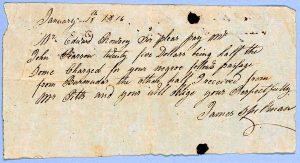 January 1st 1816
Mr. Edward Rondson Sir please pay Mr.
John Pearson twenty five Dollars being half the
Some Charged for your negroe fellows passage
from Burmuder the other half I received from
Mr Potts and your will oblige yours Respectfully
James